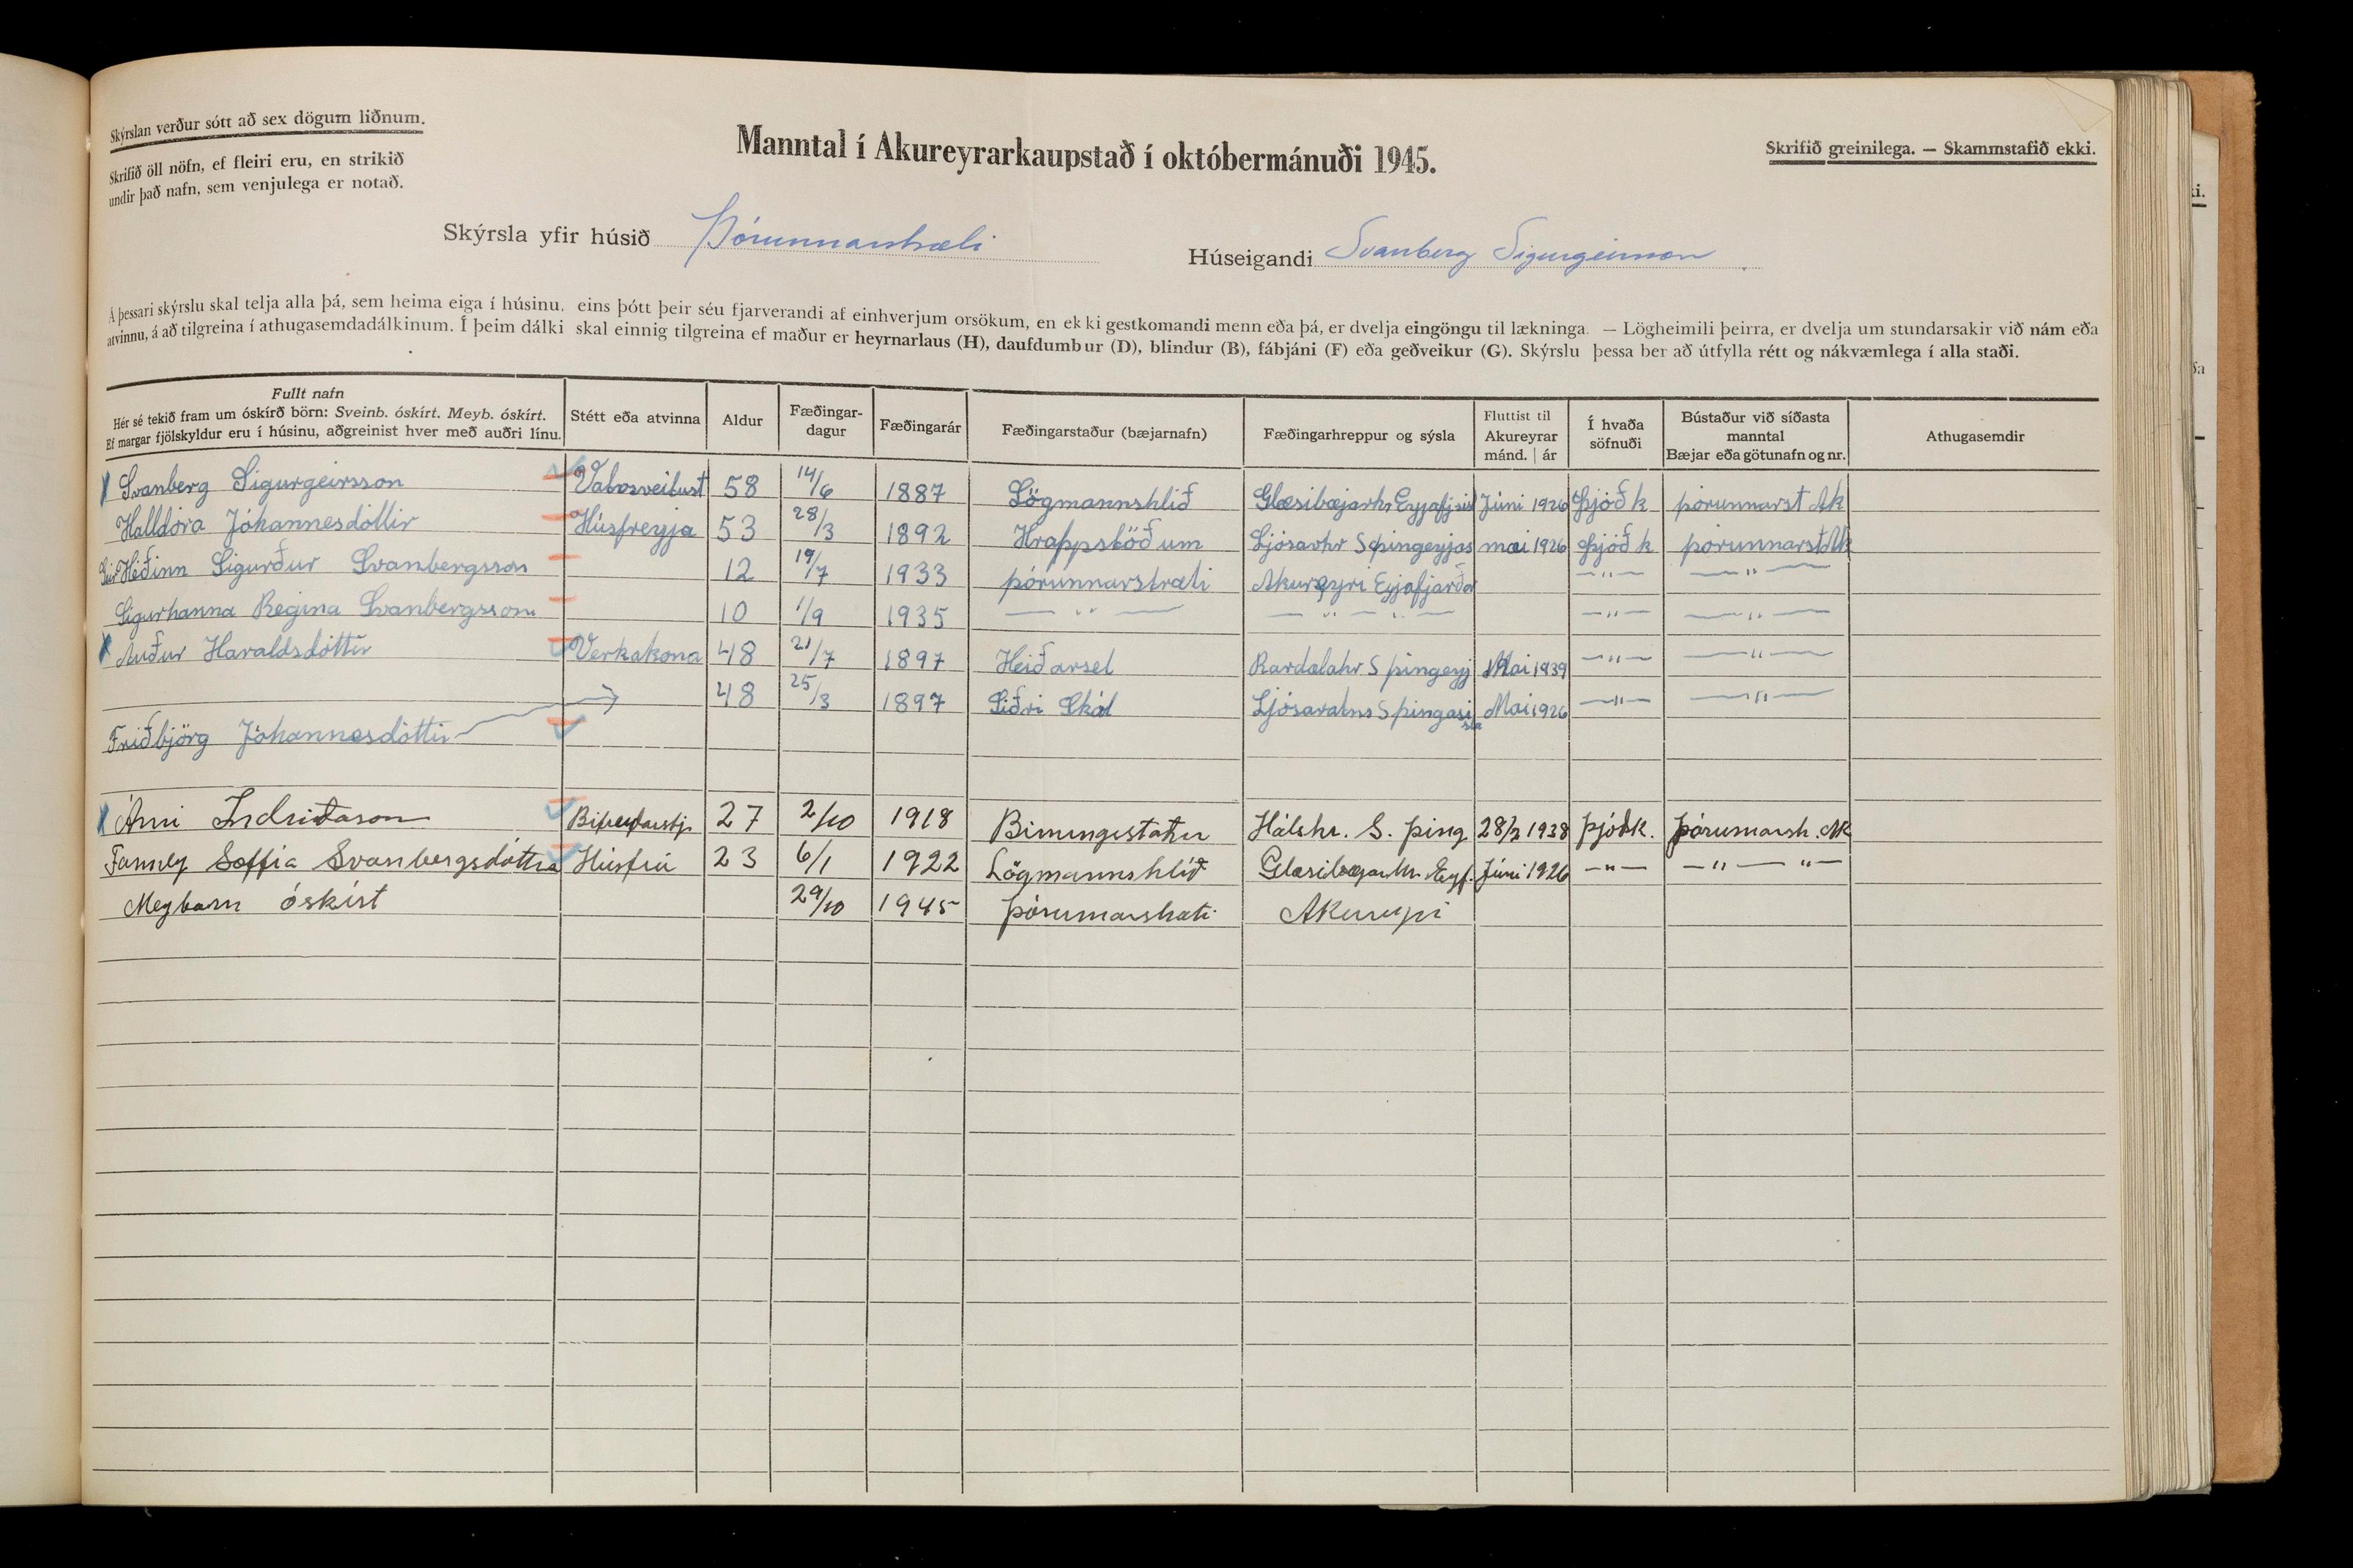 Skýrslan verður sótt að sex dögum liðnum.
Skrifið öll nöfn, ef fleiri eru, en strikið
undir það nafn, sem venjulega er notað.
Manntal í Akureyrarkaupstað í októbermánuði 1945.
Skrifið greinilega. — Skammstafið ekki.
Skýrsla yfir húsið Þórunnarstræti
Húseigandi Svanberg Sigurgeirsson
Á þessari skýrslu skal telja alla þá, sem heima eiga í húsinu, eins þótt þeir séu fjarverandi af einhverjum orsökum, en ekki gestkomandi menn eða þá, er dvelja eingöngu til lækninga. — Lögheimili þeirra, er dvelja um stundarsakir við nám eða
atvinnu, á að tilgreina í athugasemdadálkinum. Í þeim dálki skal einnig tilgreina ef maður er heyrnarlaus (H), daufdumbur (D), blindur (B), fábjáni (F) eða geðveikur (G). Skýrslu þessa ber að útfylla rétt og nákvæmlega í alla staði.
Fullt nafn
Hér sé tekið fram um óskírð börn: Sveinb. óskírt. Meyb. óskírt.
Ef margar fjölskyldur eru í húsinu, aðgreinist hver með auðri línu.
Stétt eða atvinna
Aldur
Fæðingar-
dagur
Fæðingarár
Fæðingarstaður (bæjarnafn)
Fæðingarhreppur og sýsla
Fluttist til
Akureyrar
mánd. | ár
Í hvaða
söfnuði
Bústaður við síðasta
manntal
Bæjar eða götunafn og nr.
Athugasemdir
Svanberg Sigurgeirsson 58 14/6 1887 Lögmannshlíð Glæsibæjarhr Júní 1926 Þjóðk Þórunnarst Ak
Halldóra Jóhannesdóttir Húsfreyja 53 28/3 1892 Hrappstöðum Ljósavhr S Þingeyjas mai 1926 Þjóðk Þórunnarst Ak
Héðinn Sigurður Svanbergsson 12 19/7 1933 Þórunnarstræti Akureyri Eyjafjarða —"— —"—
Sigurhanna Regina Svanbergsson 10 1/9 1935 — " — — " — " — —"— —"—
Auður Haraldsdóttir Verkakona 48 21/7 1897 Heiðarsel Bardælahr S Þingeyj Mai 1939 —"— —"—
48 25/3 1897 Ljósavatns S Þingasi Mai 1926 —"— —"—
Friðbjörg Jóhannesdóttir
Árni Indriðason Bifreiðarstj 27 2/10 1918 Hálshr. S. Þing 1938 Þjóðk. Þórunnarstr. Ak
Fanney Soffía Svanbergsdóttir Húsfrú 23 6/1 1922 Lögmannshlíð Glæsibæjarhr. Eyf. Júní 1926 —"— —"— "—
Meybarn óskírt 29/10 1945 Þórunnarstræti Akureyri